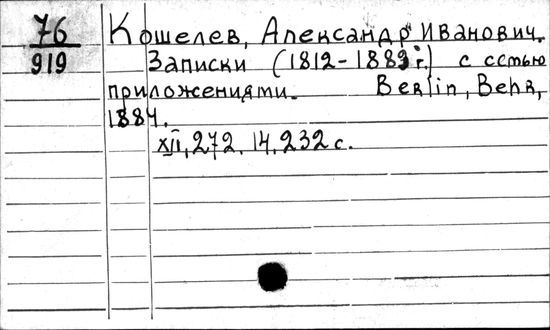 76
919
Кошелев, Александр Иванович.
Записки (1812-1883 г.) с семью
приложениями. Berlin, Behr,
1884.
XII, 272, 14, 232 с.